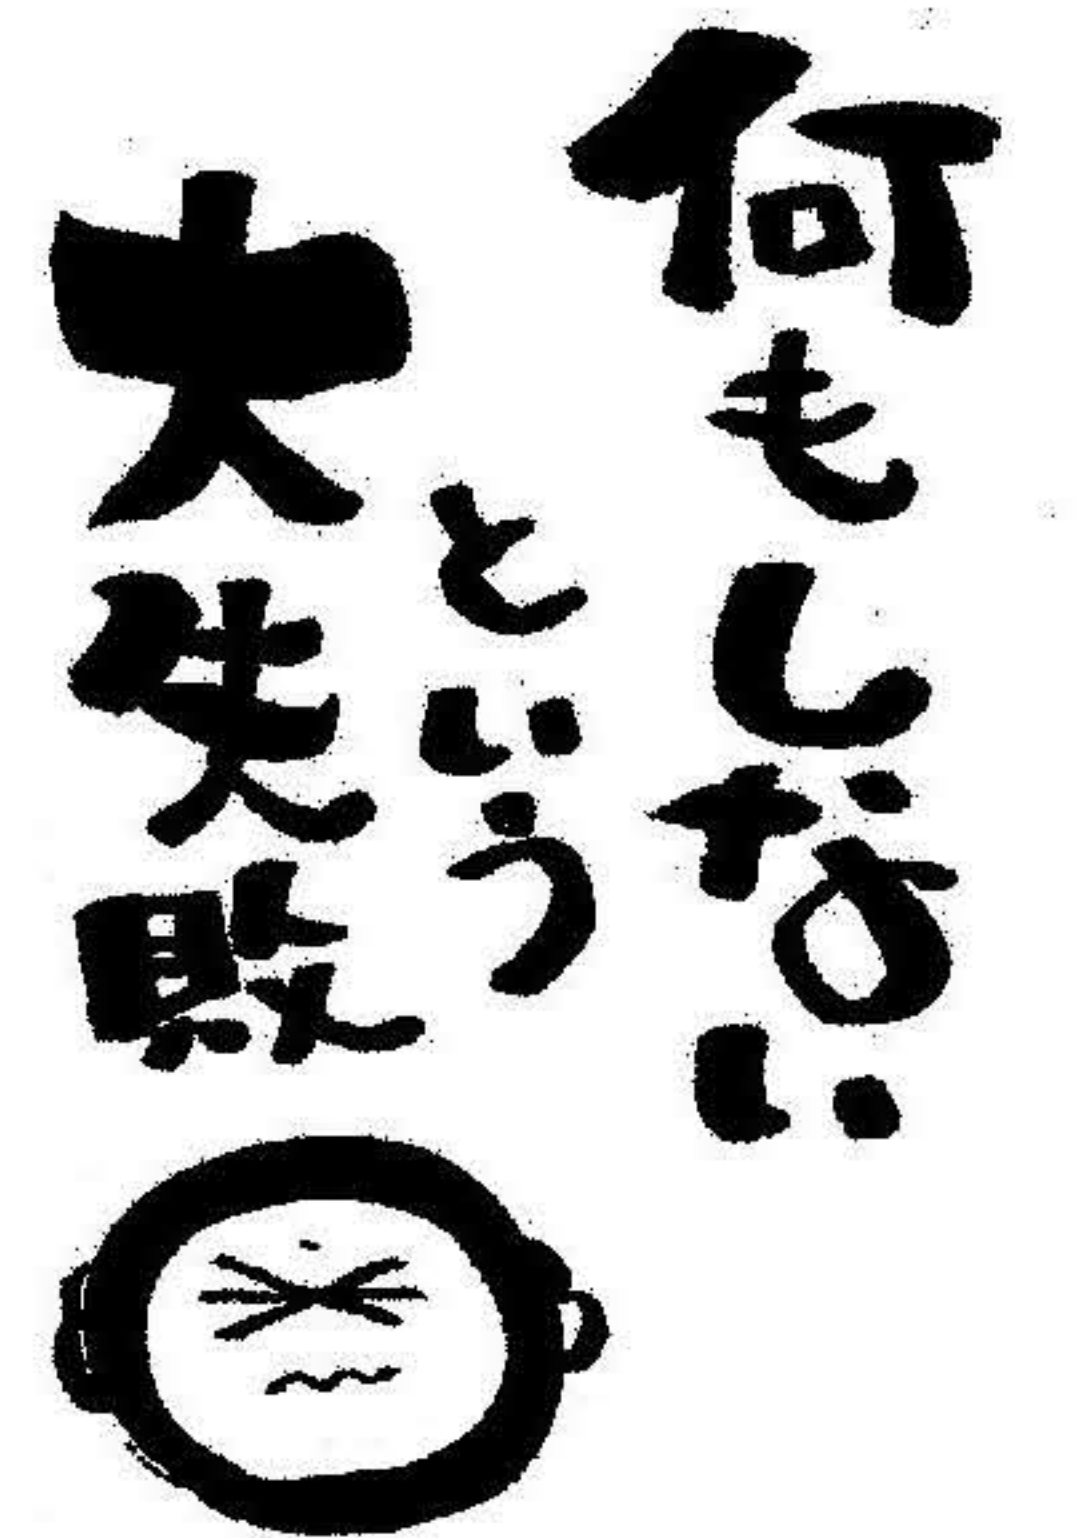 何もしない
という
大失敗